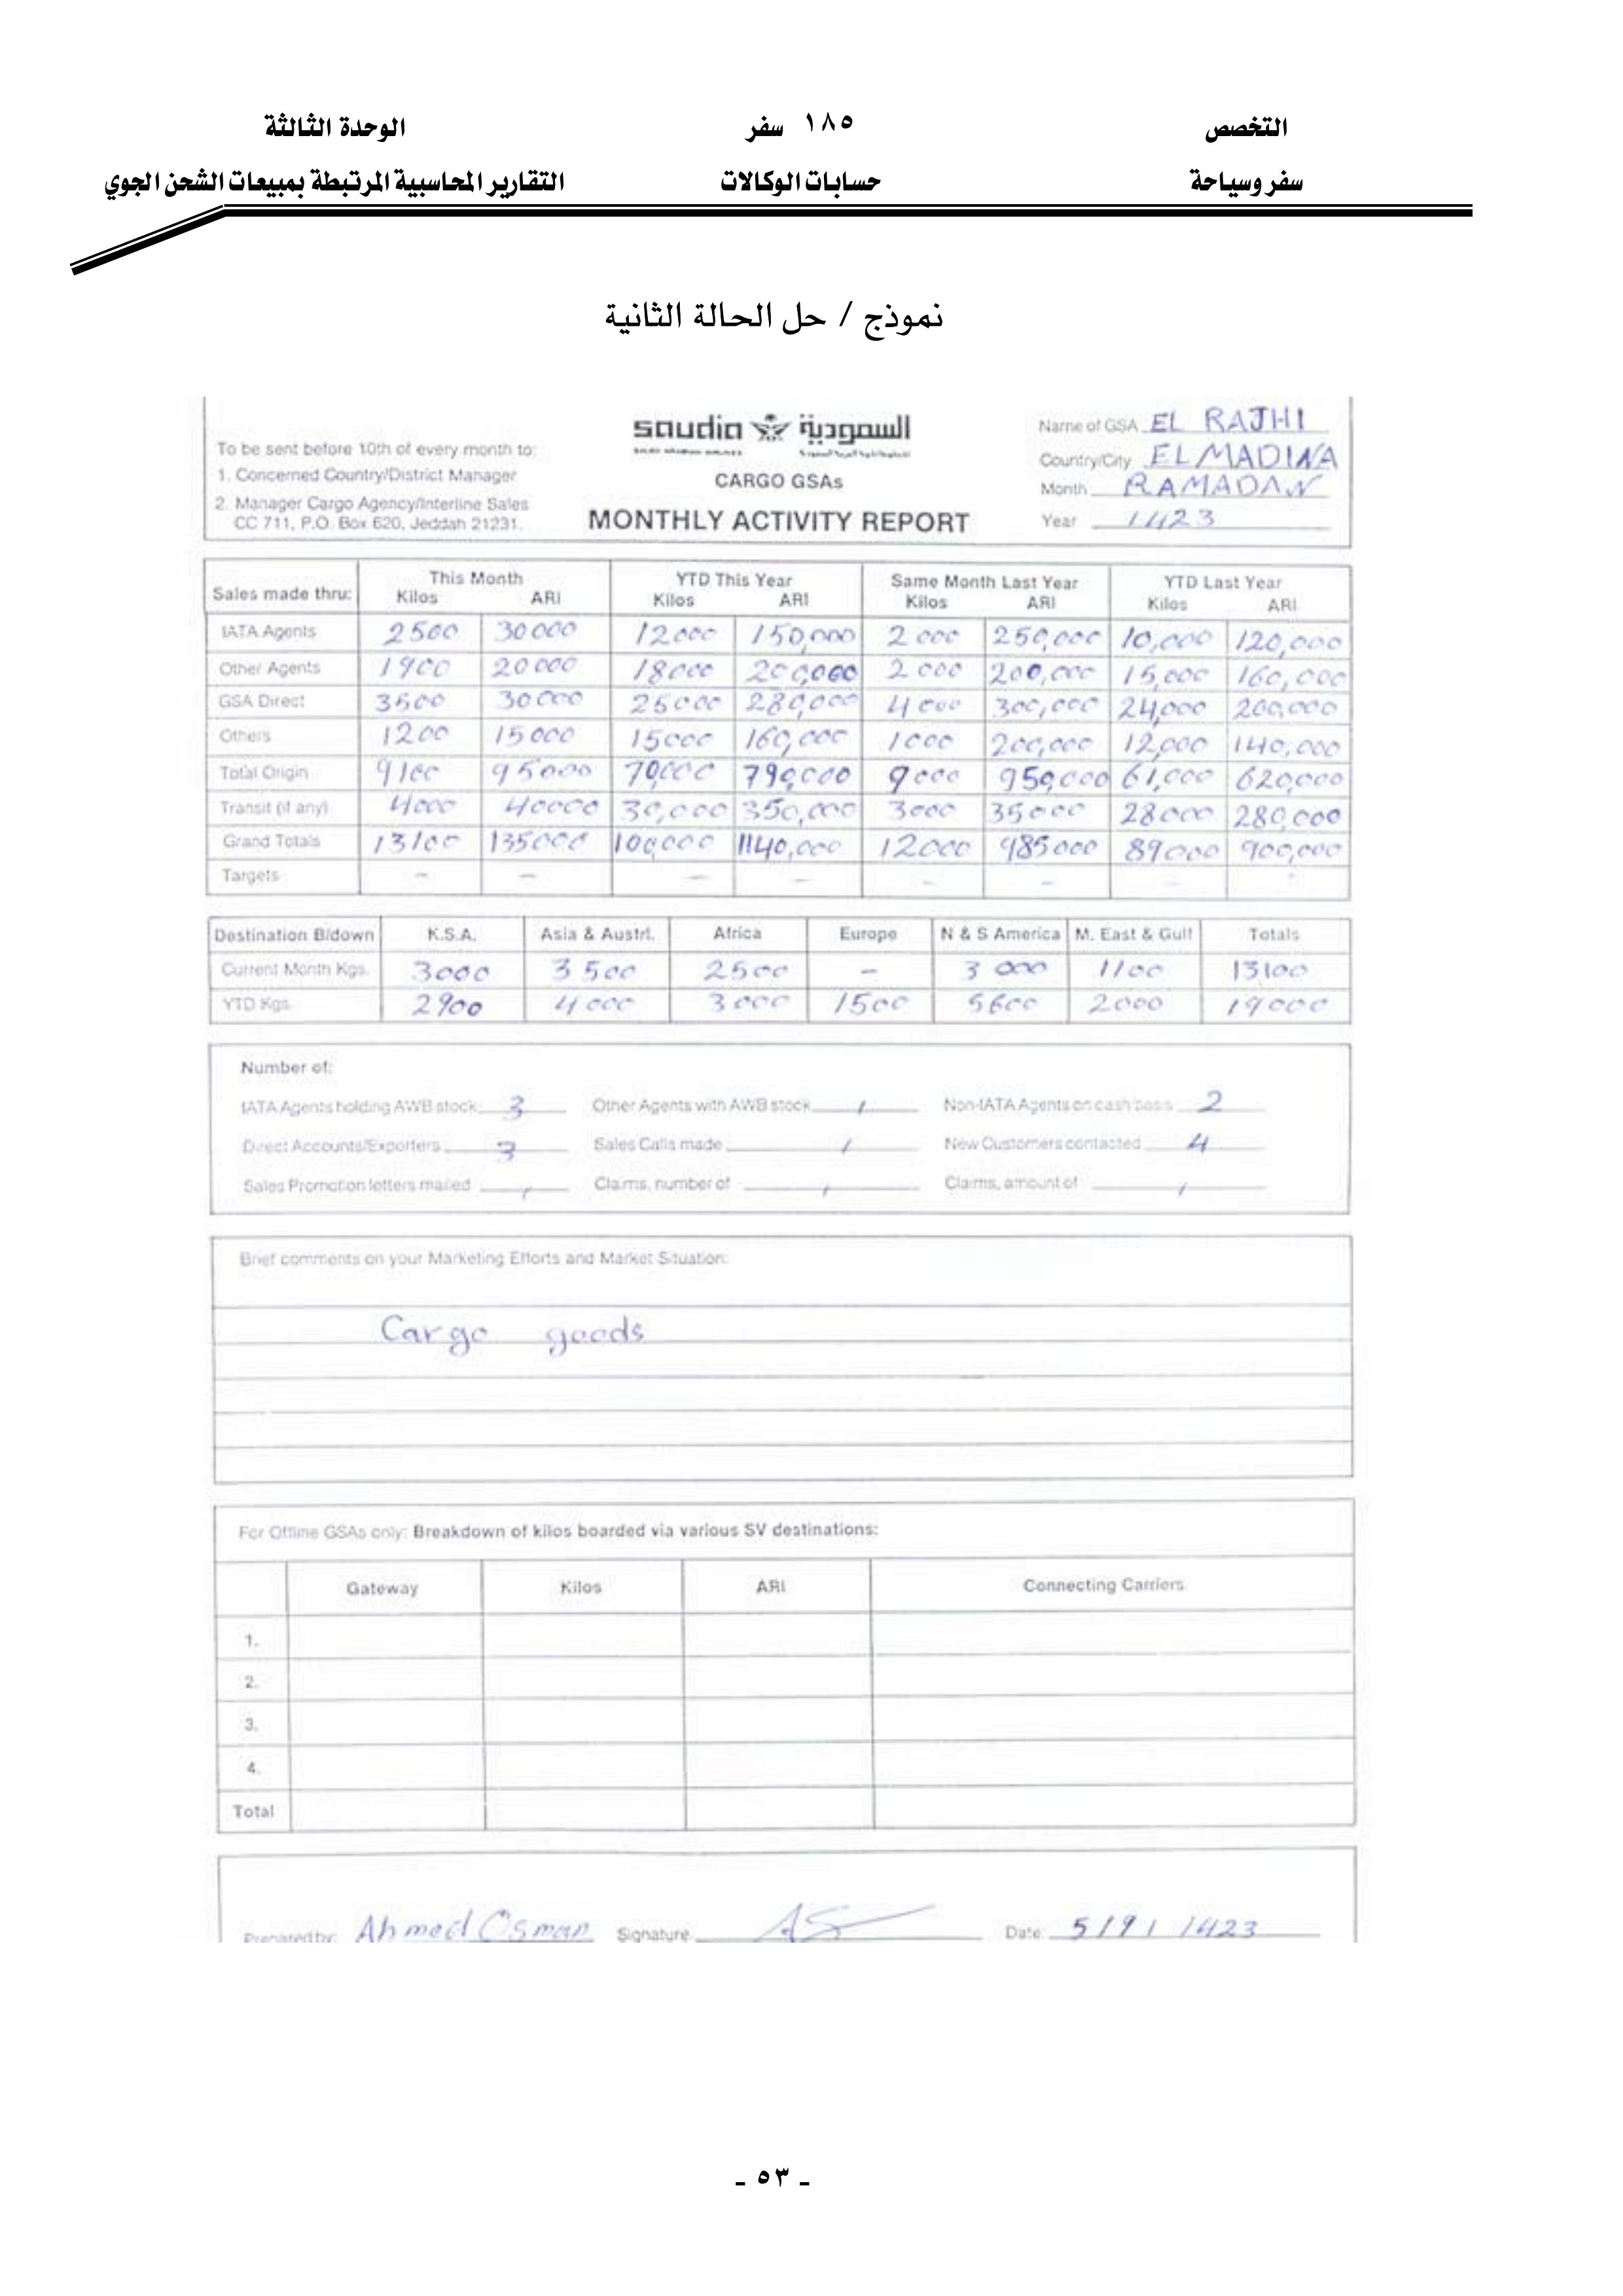 التخصص ١٨٥ سفر الوحدة الثالثة
سفر وسياحة حسابات الوكالات التقارير المحاسبية المرتبطة بمبيعات الشحن الجوي
نموذج / حل الحالة الثانية
saudia السعودية
To be sent before 10th of every month to:
1. Concerned Country/District Manager
2. Manager Cargo Agency/Interline Sales
CC 711, P.O. Box 620, Jeddah 21231.
CARGO GSAs
MONTHLY ACTIVITY REPORT
Name of GSA EL RAJHI
Country/City EL MADINA
Month RAMADAN
Year 1423
Sales made thru: This Month YTD This Year Same Month Last Year YTD Last Year
Kilos ARI Kilos ARI Kilos ARI Kilos ARI
IATA Agents 2500 30000 12000 150,000 2000 250,000 10,000 120,000
Other Agents 1900 20000 18000 200,000 2000 200,000 15,000 160,000
GSA Direct 3500 30000 25000 280,000 4000 300,000 24,000 200,000
Others 1200 15000 15000 160,000 1000 200,000 12,000 140,000
Total Origin 9100 95000 70000 790,000 9000 950,000 61,000 620,000
Transit (if any) 4000 40000 30,000 350,000 3000 35000 28000 280,000
Grand Totals 13100 135000 100,000 1140,000 12000 985000 89000 900,000
Targets - - - - - - -
Destination B/down K.S.A. Asia & Austrl. Africa Europe N & S America M. East & Gulf Totals
Current Month Kgs. 3000 3500 2500 - 3000 1100 13100
YTD Kgs. 2900 4000 3000 1500 5600 2000 19000
Number of:
IATA Agents holding AWB stock 3 Other Agents with AWB stock / Non-IATA Agents on cash basis 2
Direct Accounts/Exporters 3 Sales Calls made / New Customers contacted 4
Sales Promotion letters mailed / Claims, number of / Claims, amount of /
Brief comments on your Marketing Efforts and Market Situation:
Cargo goods
For Offline GSAs only: Breakdown of kilos boarded via various SV destinations:
Gateway Kilos ARI Connecting Carriers
1.
2.
3.
4.
Total
Prepared by: Ahmed Osman Signature Date: 5/9/1423
- ٥٣ -